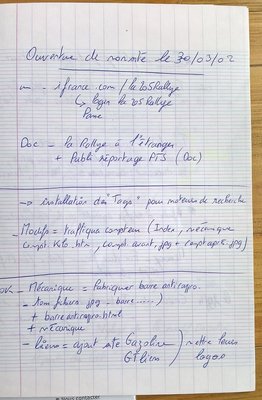 Ouverture de normité le 30/03/02
- ifrance.com/le205Rallye
↳ login le205Rallye
Doc - la Rallye à l'étranger
+ Publi réportage PTS (Doc)
→ installation des "Tags" pour moteurs de recherche
- Modifs = traffique compteur (Index, mécanique
compt.Kit.htm, compt avant.jpg + compt après.jpg)
- Mécanique = Fabriquer barre antirappro.
- tom fichiers .jpg - barre.....)
+ barreantirappro.html
+ mécanique
- liens = ajout site Gazoline ) mettre leurs
GTI liens ) logos
Nous contacter